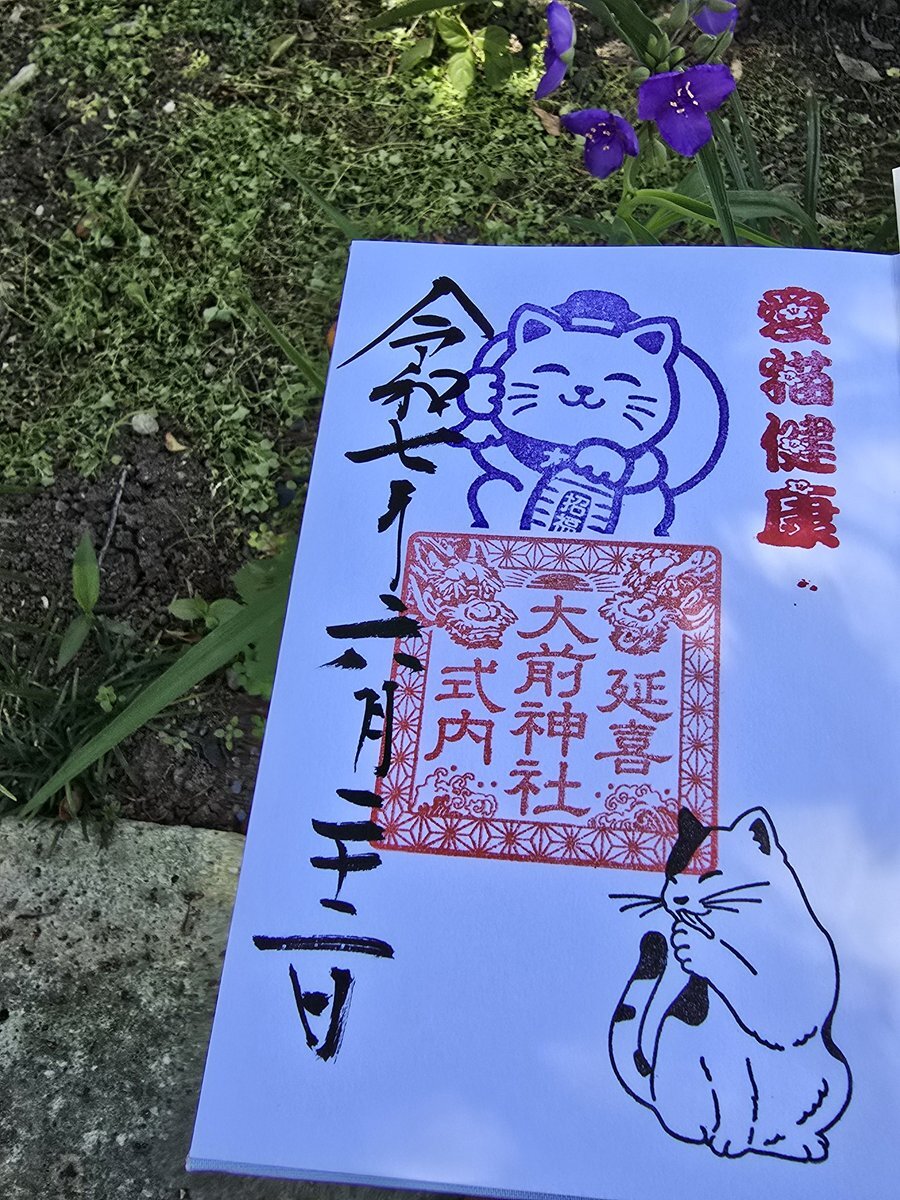 愛猫健康
招福
延喜
大前神社
式内
令和七年六月二十二日